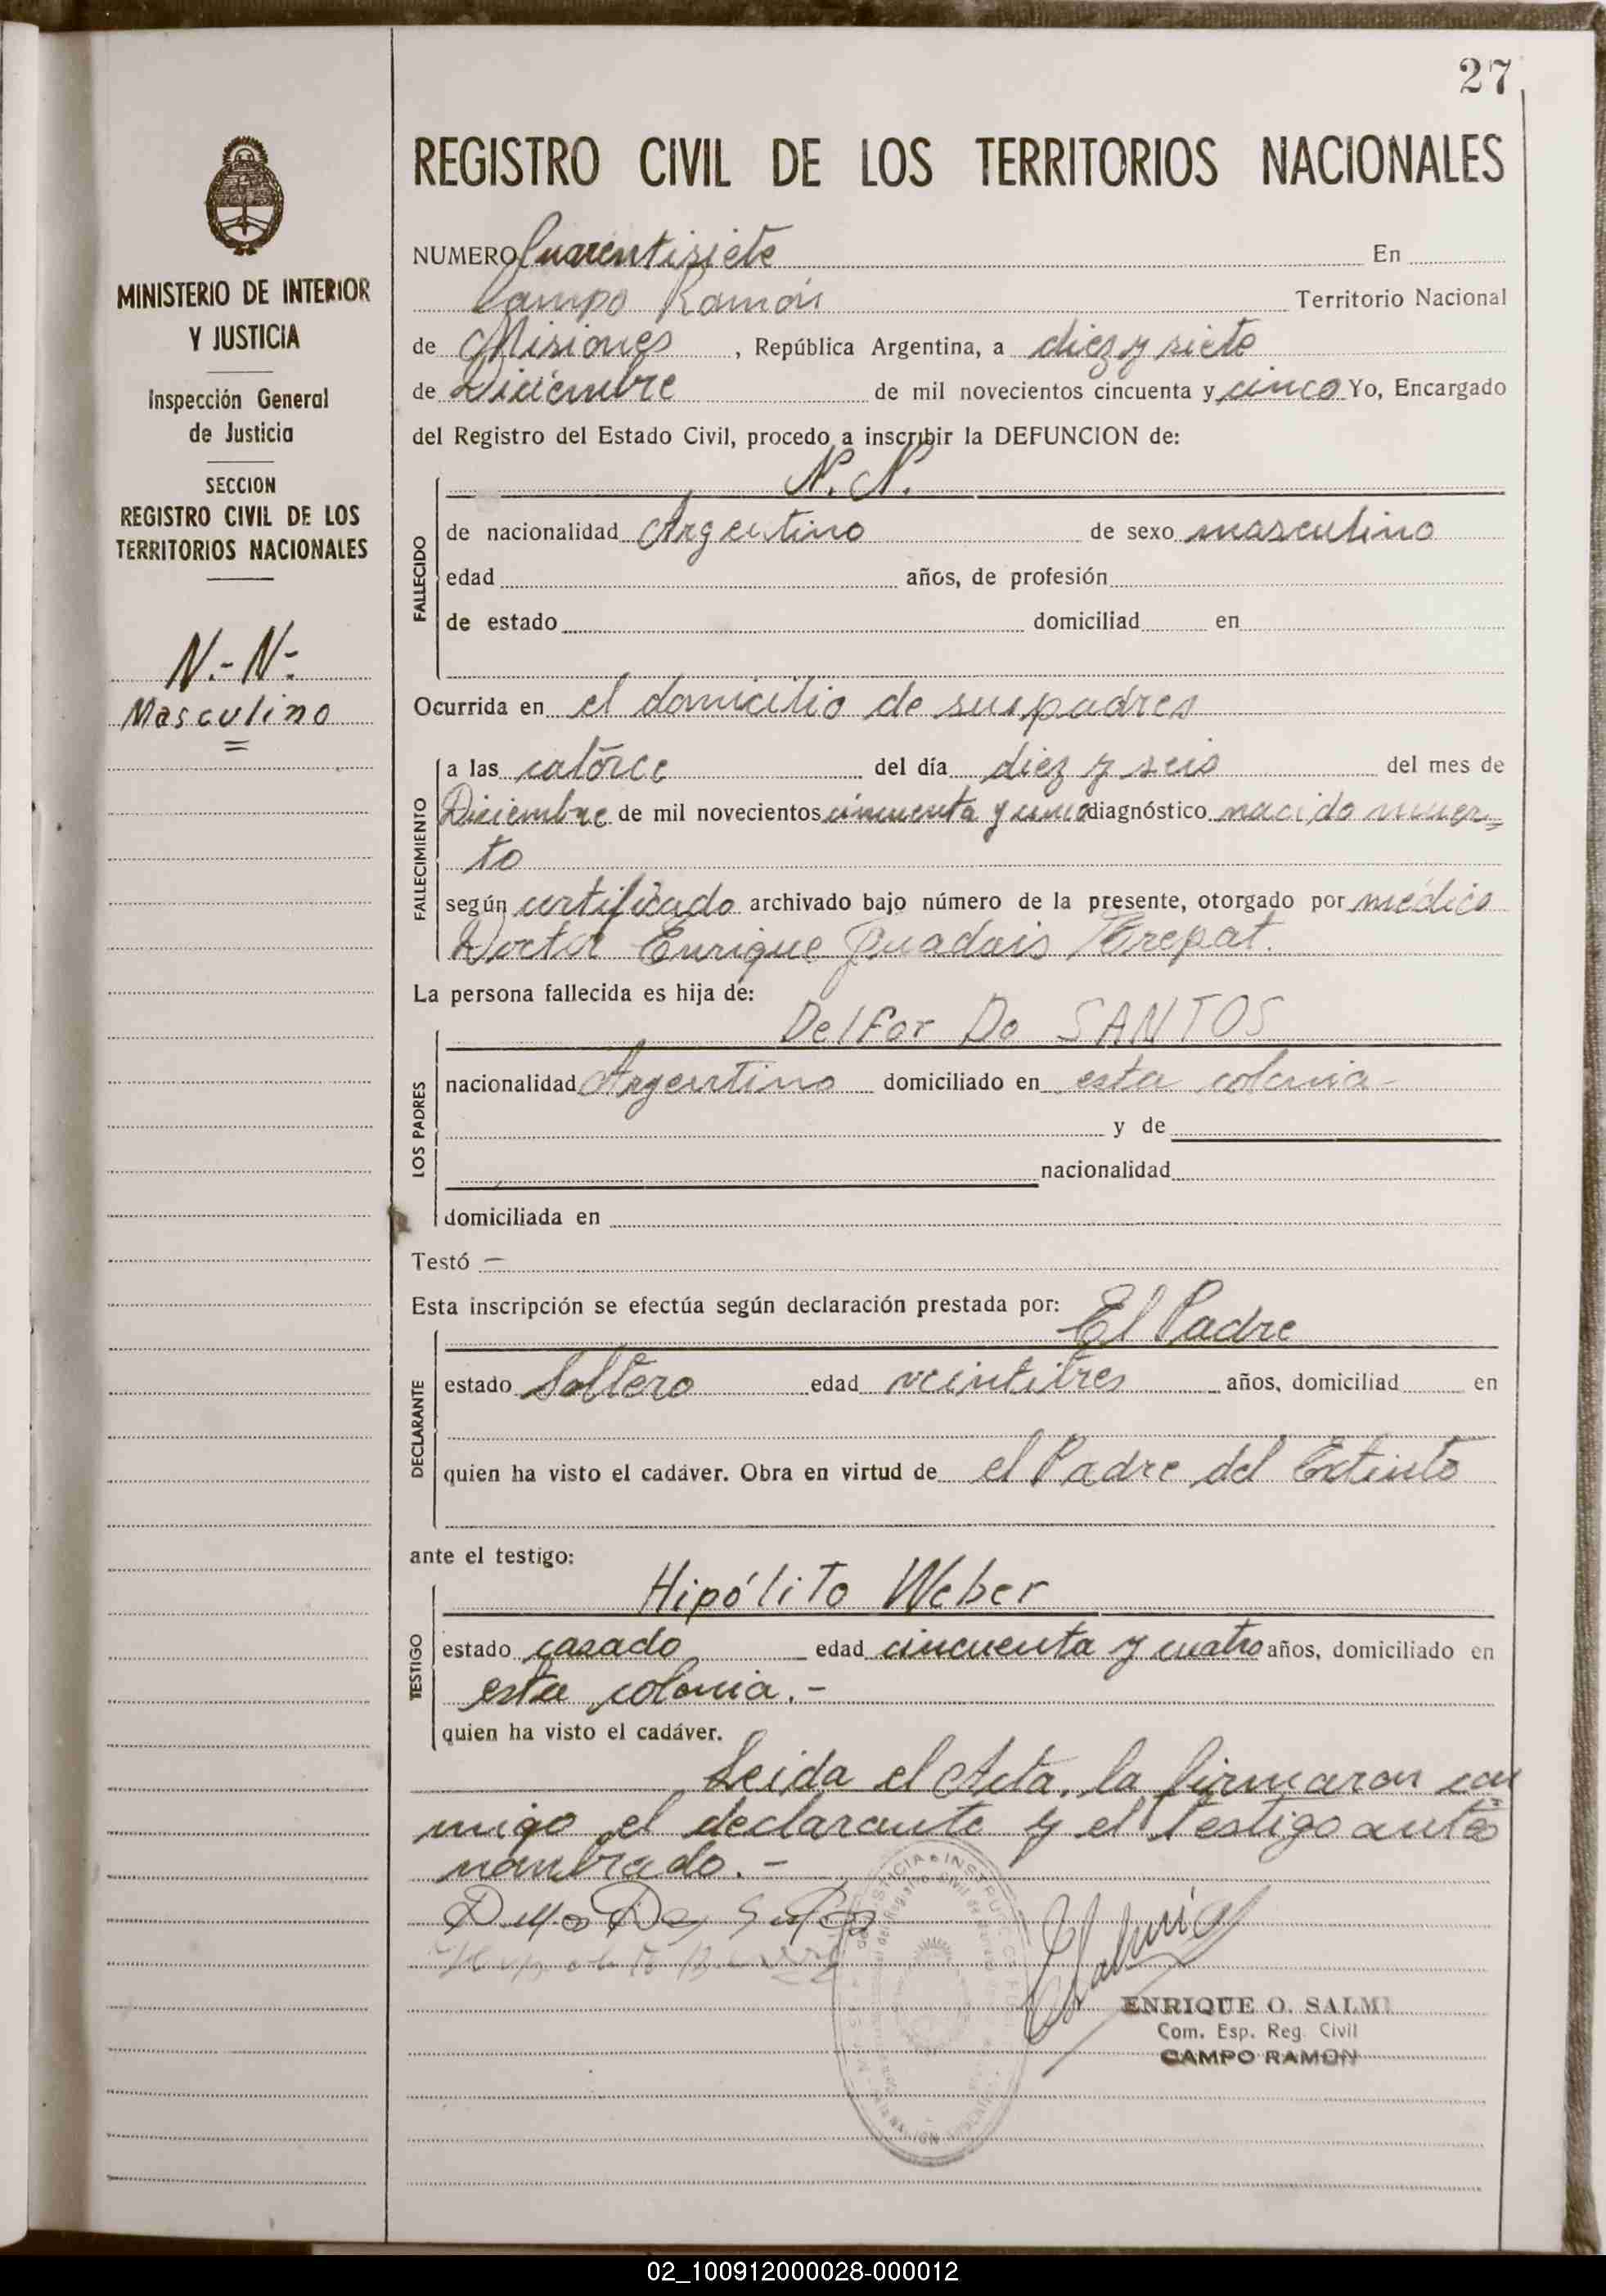 27
REGISTRO CIVIL DE LOS TERRITORIOS NACIONALES
MINISTERIO DE INTERIOR
Y JUSTICIA
Inspección General
de Justicia
SECCION
REGISTRO CIVIL DE LOS
TERRITORIOS NACIONALES
N.- N.-
Masculino
NUMERO Cuarentisiete En
Campo Ramón Territorio Nacional
de Misiones, República Argentina, a diez y siete
de Diciembre de mil novecientos cincuenta y cinco Yo, Encargado
del Registro del Estado Civil, procedo a inscribir la DEFUNCION de:
N. N.
FALLECIDO
de nacionalidad Argentino de sexo masculino
edad años, de profesión
de estado domiciliad en
Ocurrida en el domicilio de sus padres
FALLECIMIENTO
a las catorce del día diez y seis del mes de
Diciembre de mil novecientos cincuenta y cinco diagnóstico nacido muer-
to
según certificado archivado bajo número de la presente, otorgado por médico
Doctor Enrique
La persona fallecida es hija de:
Delfor Do SANTOS
LOS PADRES
nacionalidad Argentino domiciliado en esta colonia-
y de
nacionalidad
domiciliada en
Testó —
Esta inscripción se efectúa según declaración prestada por:
El Padre
DECLARANTE
estado Soltero edad veintitres años, domiciliad en
quien ha visto el cadáver. Obra en virtud de el Padre del Extinto
ante el testigo:
Hipólito Weber
TESTIGO
estado casado edad cincuenta y cuatro años, domiciliado en
esta colonia.-
quien ha visto el cadáver.
Leida el Acta, la firmaron con
migo el declarante y el testigo antes
nombrado.-
ENRIQUE O. SALMI
Com. Esp. Reg. Civil
CAMPO RAMON
02_100912000028-000012